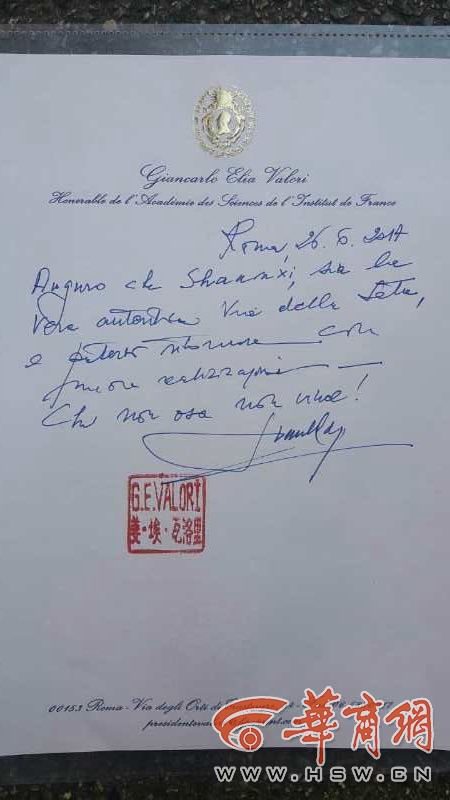 Giancarlo Elia Valori
Honorable de l'Académie des Sciences de l'Institut de France
Roma, 26. 5. 2017
Auguro che Shaanxi, sia la
vera autentica Via della Seta,
e
con
nuove realizzazioni
Chi non osa non vive!
G.E.VALORI
姜·埃·瓦洛里
00153 Roma - Via degli Orti di
华商网
WWW.HSW.CN